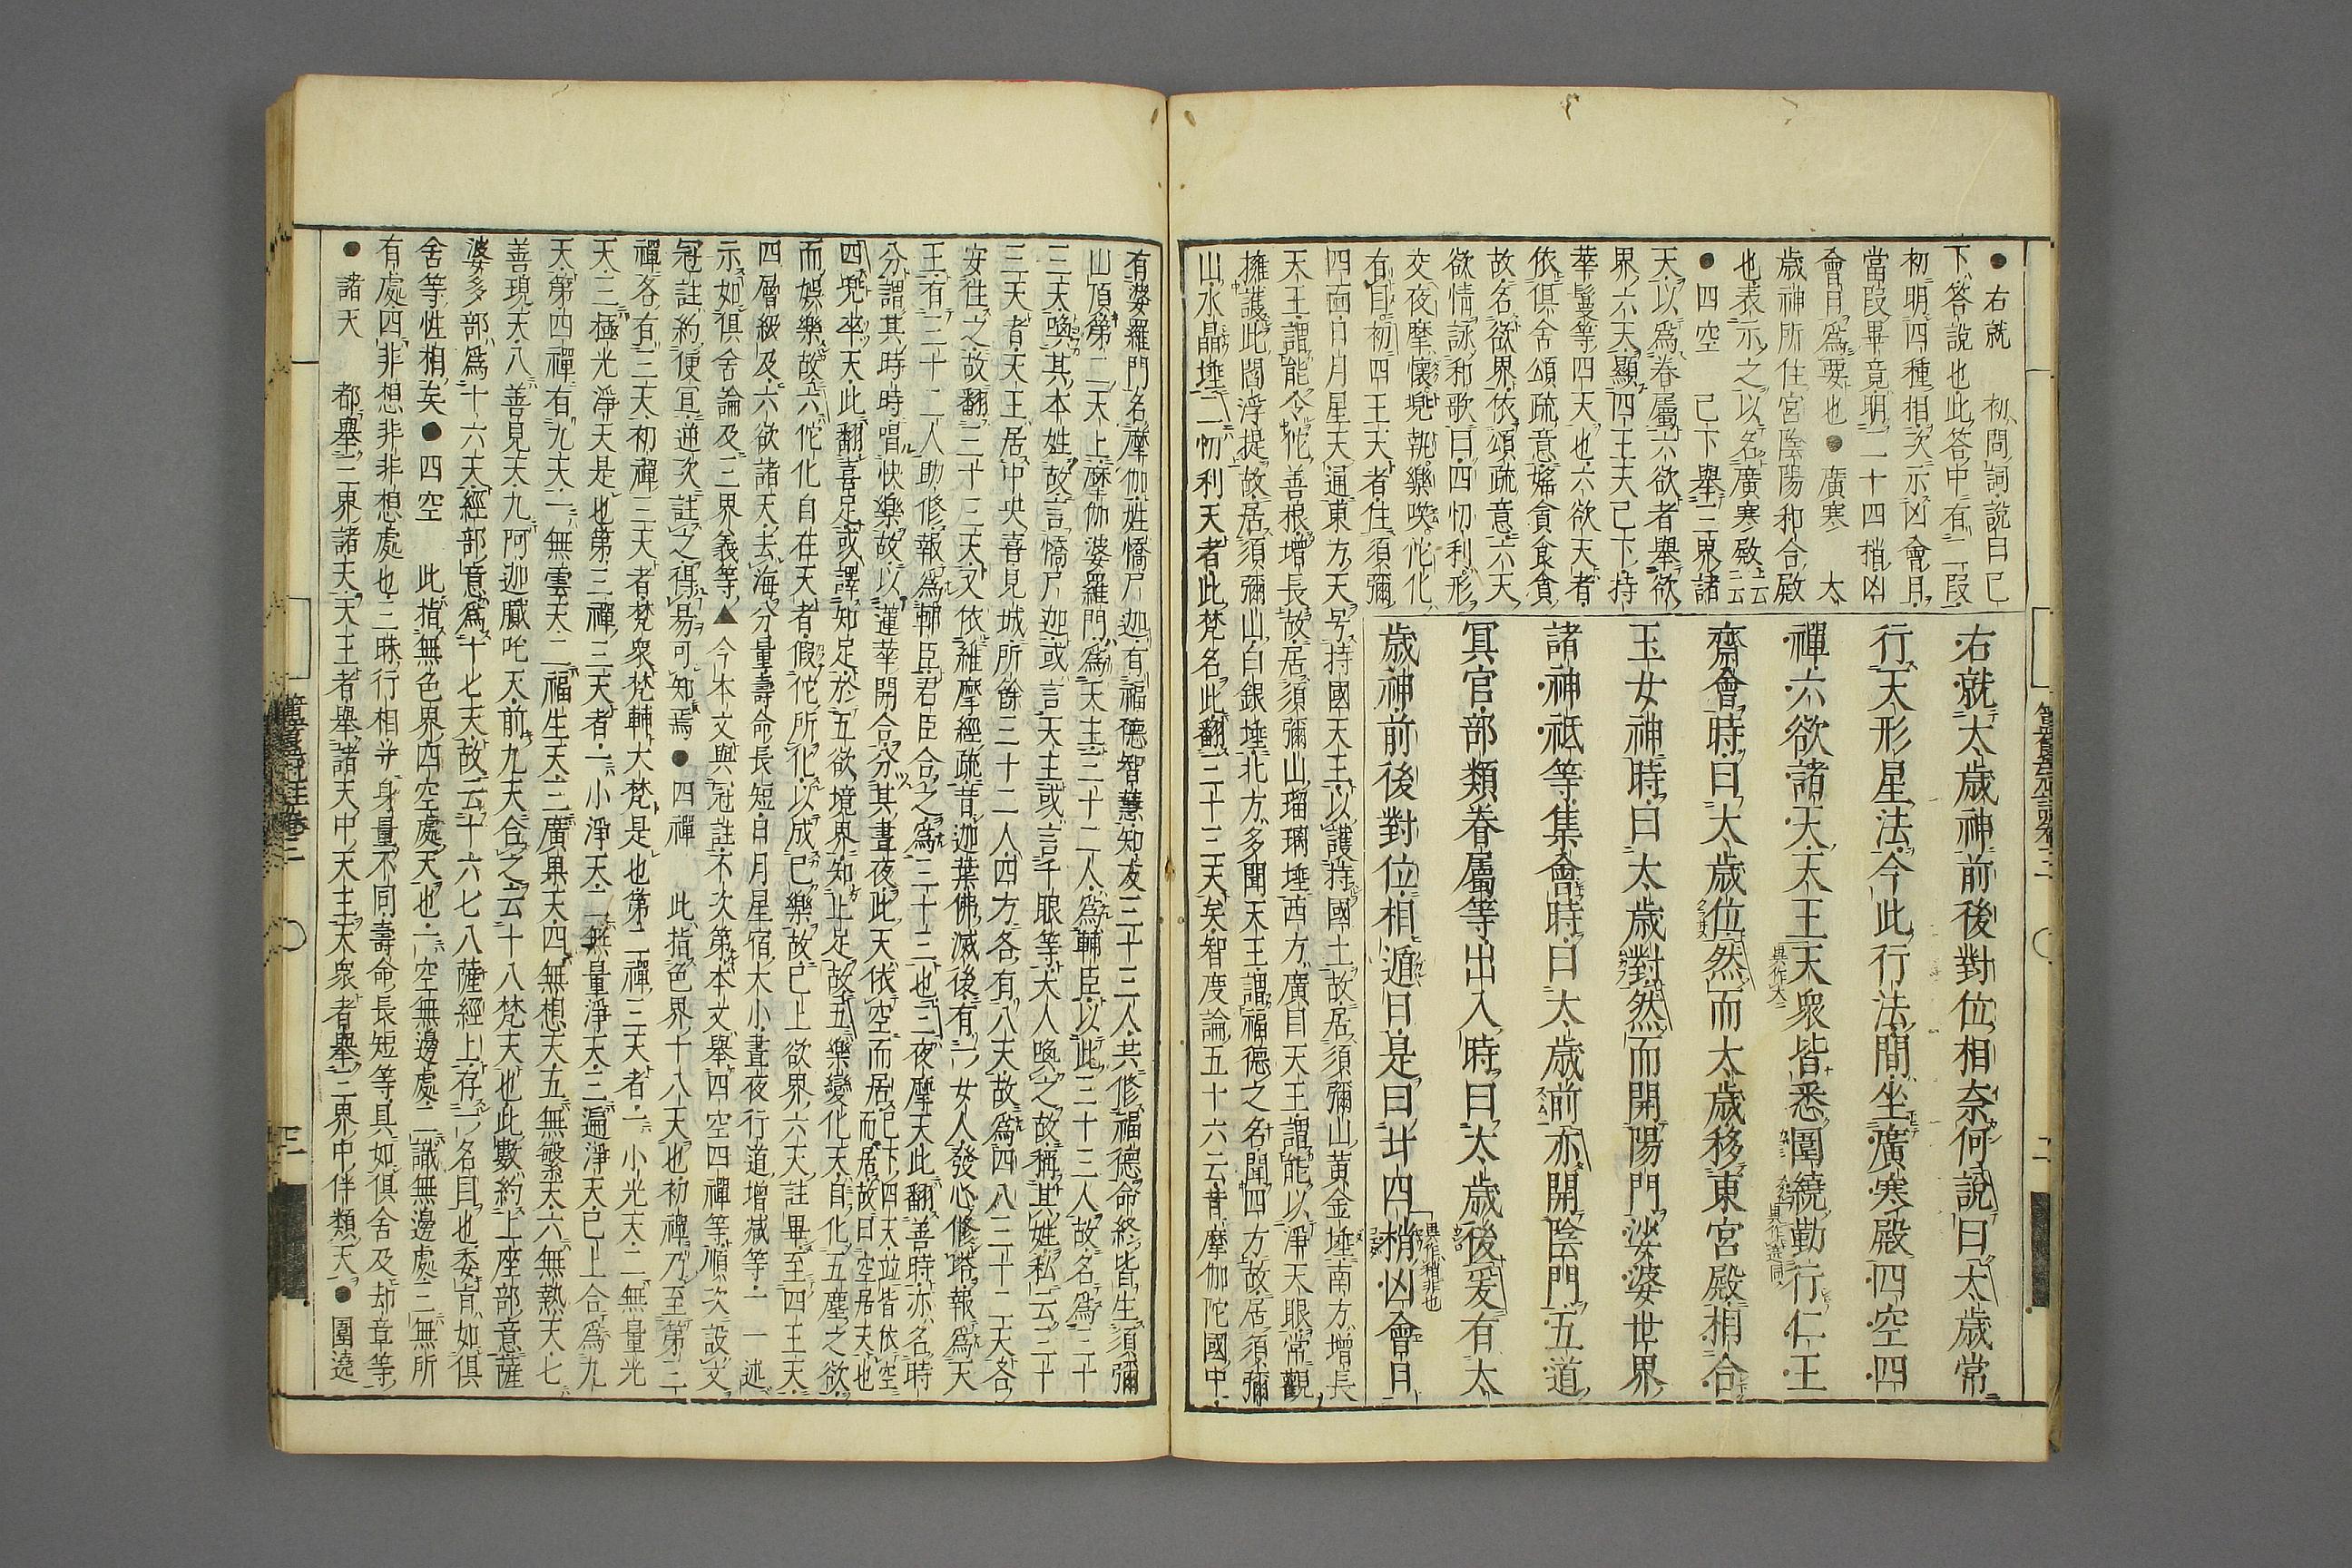 右就太歲神前後對位相奈何說曰太歲常
行天形星法今此行法間坐廣寒殿四空四
禪六欲諸天天王天衆皆悉圍繞勤行仁王
齋會時曰太歲位然而太歲移東宮殿相合
玉女神時曰太歲對然而開陽門娑婆世界
諸神祇等集會時曰太歲前亦開陰門五道
冥官部類眷屬等出入時曰太歲後爰有太
歲神前後對位相遁日是曰廿四梢凶會日
●右就 初問詞說曰已
下答說也此答中有二段
初明四種相次示凶會月
當段畢竟明二十四梢凶
會月為要也●廣寒 太
歲神所住宮陰陽和合殿
也表示之以名廣寒殿云云
●四空 已下舉三界諸
天以為眷屬六欲者舉欲
界六天顯四王天已下持
華鬘等四天也六欲天者
依俱舍頌疏意婬貪食貪
故名欲界依頌疏意六天
欲情詠和歌曰四忉利形
交夜摩懷兜執樂咲佗化
有目初四王天者住須彌
四面日月星天通東方天号持國天王以護持國土故居須彌山黃金埵南方增長
天王謂能令佗善根增長故居須彌山瑠璃埵西方廣目天王謂能以淨天眼常觀
擁護此閻浮提故居須彌山白銀埵北方多聞天王謂福德之名聞四方故居須彌
山水晶埵二忉利天者此梵名此翻三十三天矣智度論五十六云昔摩伽陀國中
有婆羅門名摩伽姓憍尸迦有福德智慧知友三十三人共修福德命終皆生須彌
山頂第二天上摩伽婆羅門為天主三十二人為輔臣以此三十三人故名為三十
三天喚其本姓故言憍尸迦或言天主或言千眼等大人喚之故稱其姓私云三十
三天者天王居中央喜見城所餘三十二人四方各有八天故為四八三十二天各
安住之故翻三十三天文依維摩經疏昔迦葉佛滅後有一女人發心修塔報為天
王有三十二人助修報為輔臣君臣合之為三十三也三夜摩天此翻善時亦名時
分謂其時時唱快樂故以蓮華開合分其晝夜此天依空而居已下四天並皆依空而居故曰空居天也
四兜率天此翻喜足或譯知足於五欲境界知止足故五樂變化天自化五塵之欲
而娛樂故六佗化自在天者假佗所化以成已樂故已上欲界六天註畢至四王天
四層級及六欲諸天去海分量壽命長短日月星宿大小晝夜行道增減等一一述
示如俱舍論及三界義等▲今本文與冠註不次第本文舉四空四禪等順次設文
冠註約便宜逆次註之得易可知焉●四禪 此指色界十八天也初禪乃至第二
禪各有三天初禪三天者梵衆梵輔大梵是也第二禪三天者一小光天二無量光
天三極光淨天是也第三禪三天者一小淨天二無量淨天三遍淨天已上合為九
天第四禪有九天一無雲天二福生天三廣果天四無想天五無煩天六無熱天七
善現天八善見天九阿迦膩吒天前九天合之云十八梵天也此數約上座部意薩
婆多部為十六天經部意為十七天故云十六七八薩經上存一名目也委旨如俱
舍等性相矣●四空 此指無色界四空處天也一空無邊處二識無邊處三無所
有處四非想非非想處也三昧行相并身量不同壽命長短等具如俱舍及却章等
●諸天 都舉三界諸天天王者舉諸天中天主天衆者舉三界中伴類天●圍遶